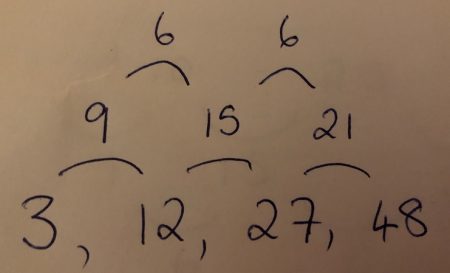 6 6
9 15 21
3, 12, 27, 48